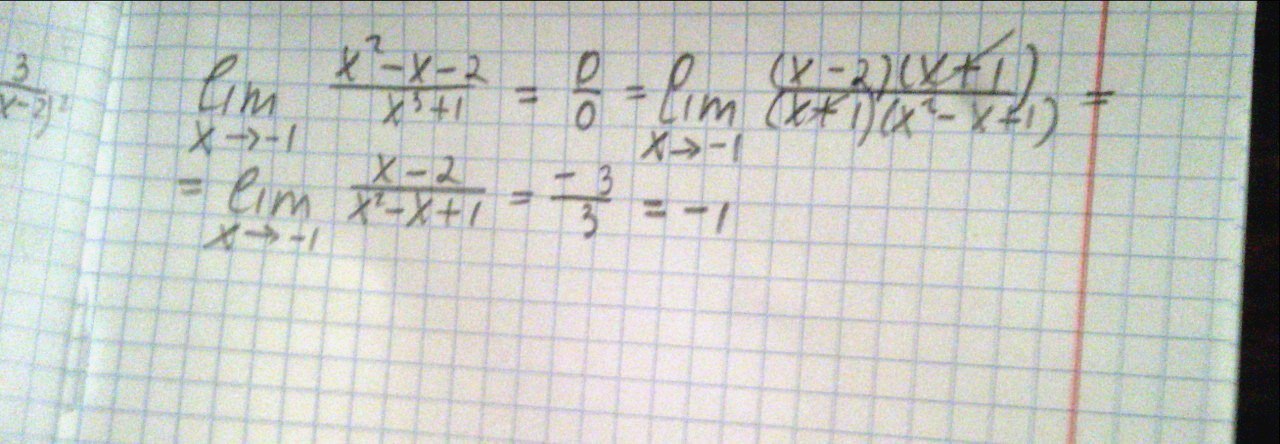 3/(x-2)²
lim x→-1 (x²-x-2)/(x³+1) = 0/0 = lim x→-1 ((x-2)(x+1))/((x+1)(x²-x+1)) =
= lim x→-1 (x-2)/(x²-x+1) = -3/3 = -1